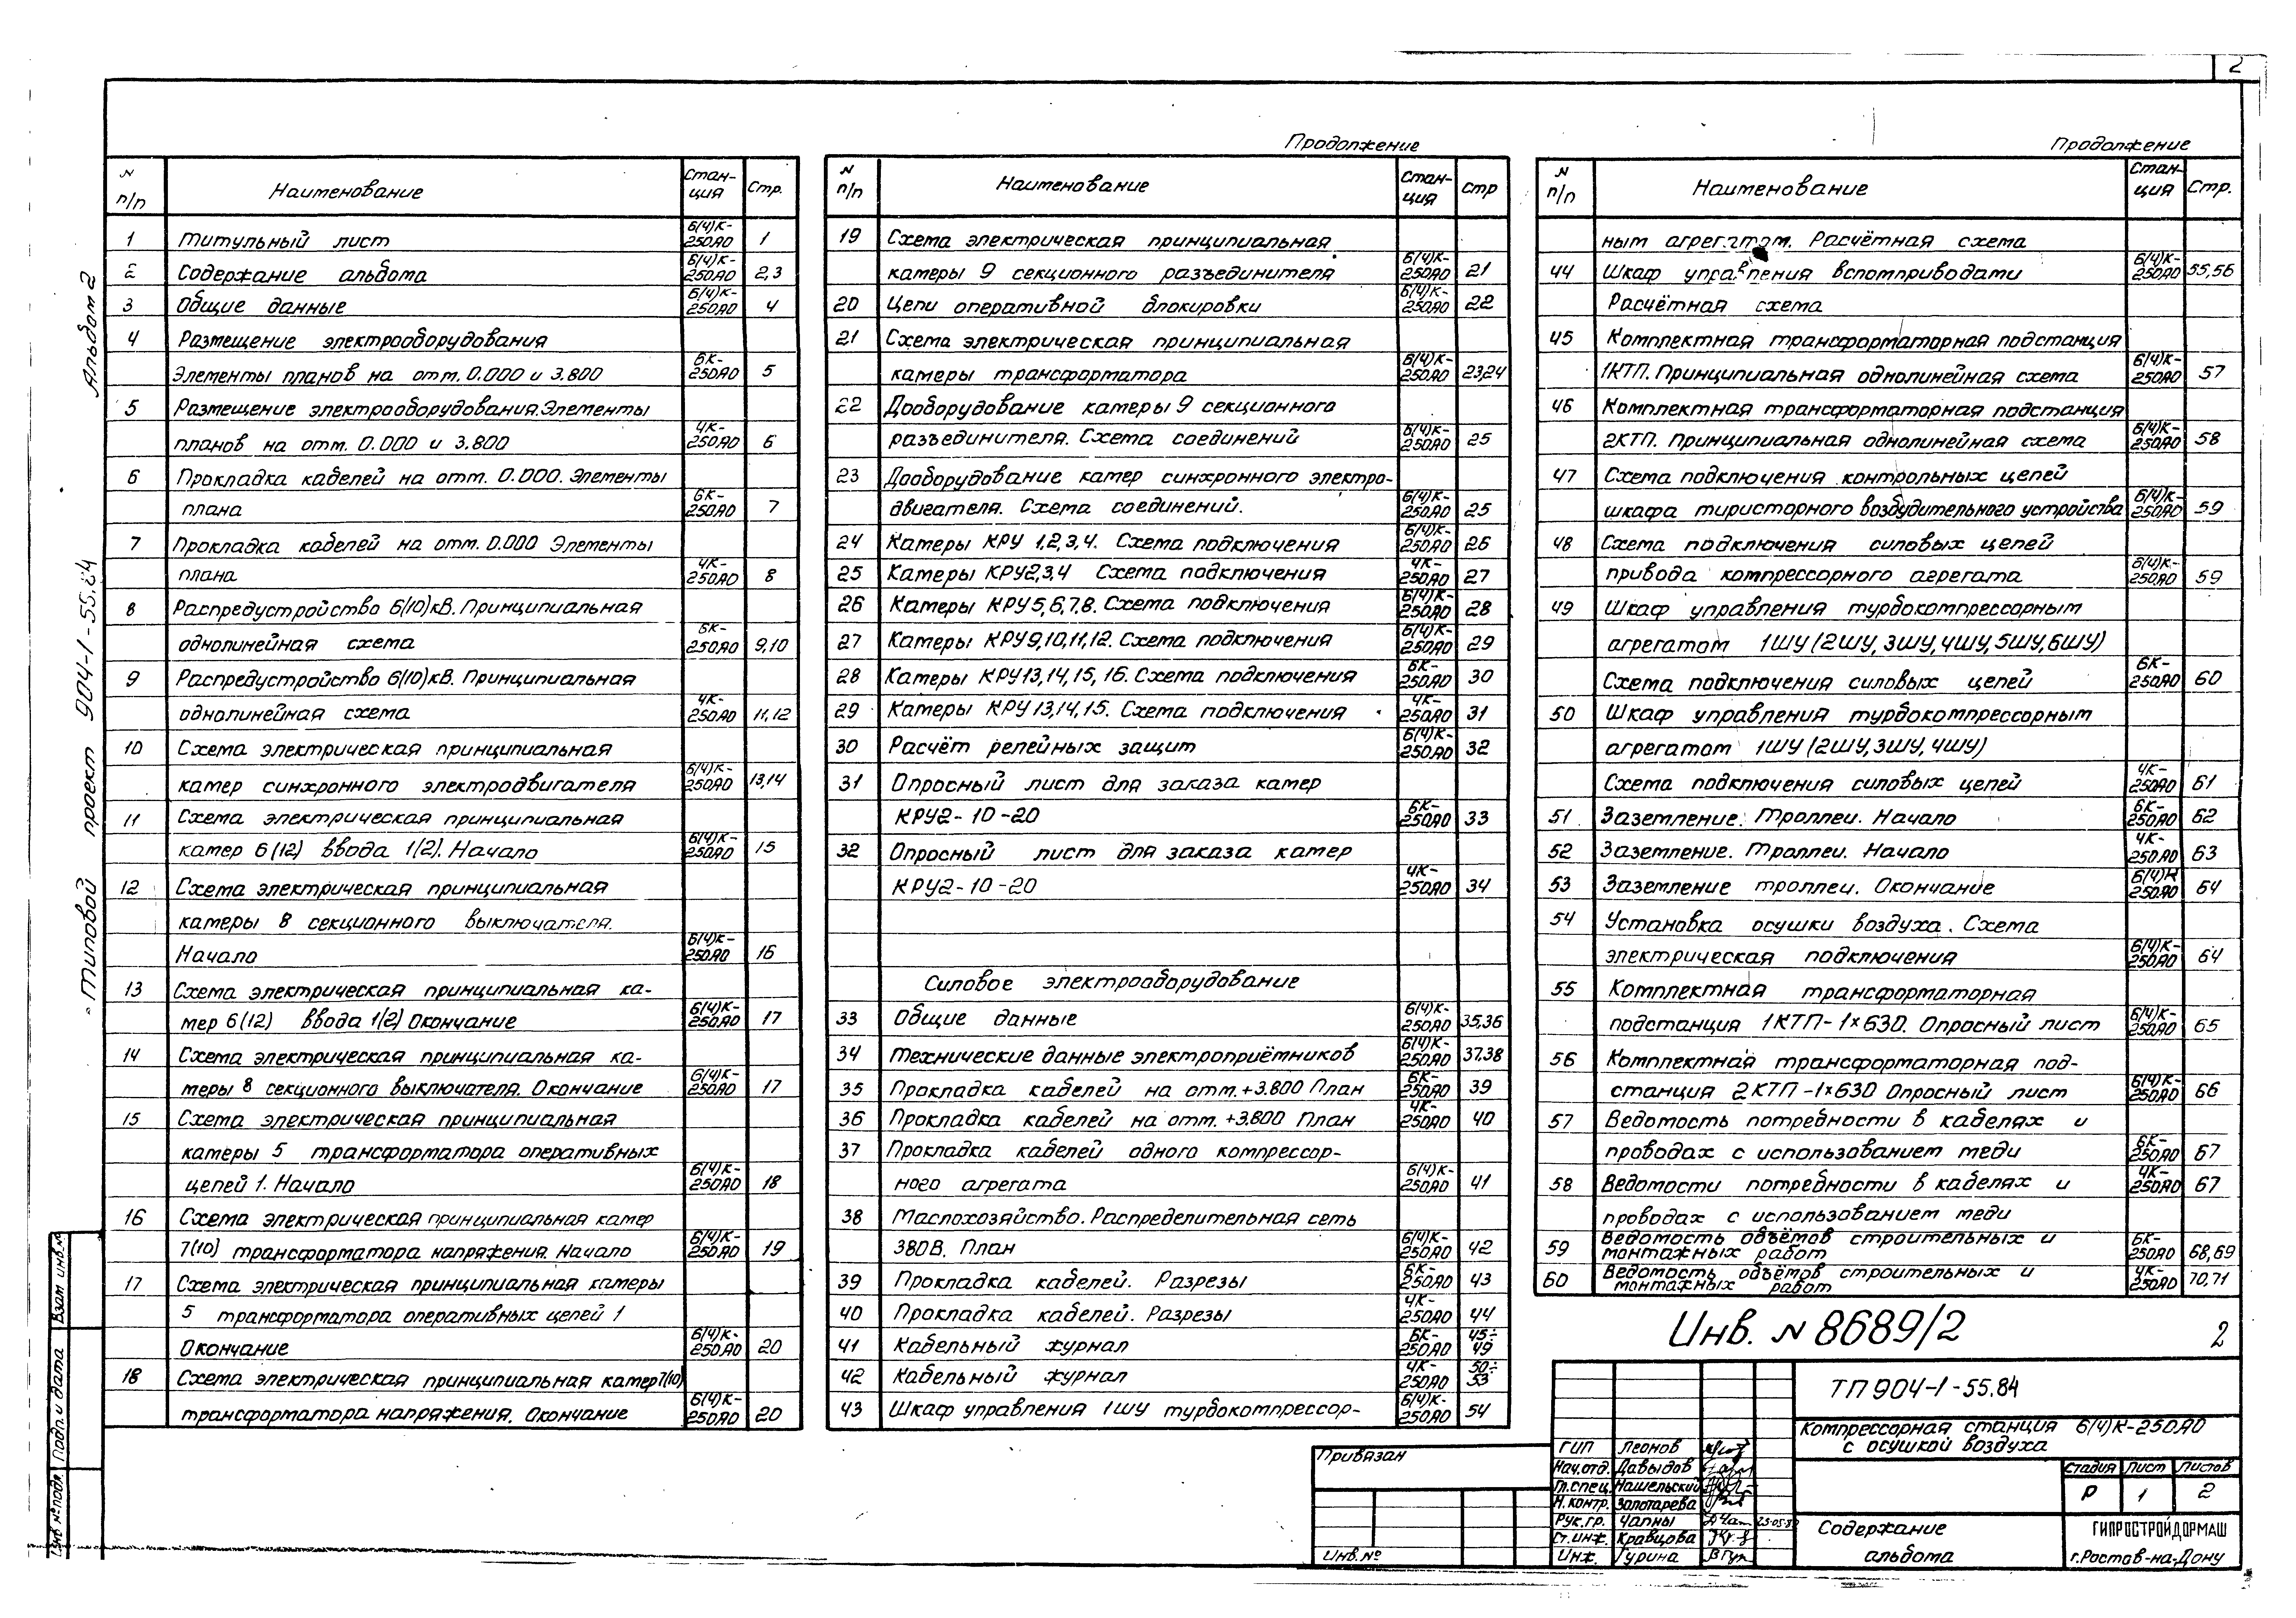 2
Типовой проект 904-1-55.84 Альбом 2
N п/п Наименование Стан-ция Стр.
1 Титульный лист 6(4)К-250А0 1
2 Содержание альбома 6(4)К-250А0 2,3
3 Общие данные 6(4)К-250А0 4
4 Размещение электрооборудования
Элементы планов на отм. 0.000 и 3.800 6К-250А0 5
5 Размещение электрооборудования. Элементы
планов на отм. 0.000 и 3.800 4К-250А0 6
6 Прокладка кабелей на отм. 0.000. Элементы
плана 6К-250А0 7
7 Прокладка кабелей на отм. 0.000 Элементы
плана 4К-250А0 8
8 Распредустройство 6(10)кВ. Принципиальная
однолинейная схема 6К-250А0 9,10
9 Распредустройство 6(10)кВ. Принципиальная
однолинейная схема 4К-250А0 11,12
10 Схема электрическая принципиальная
камер синхронного электродвигателя 6(4)К-250А0 13,14
11 Схема электрическая принципиальная
камер 6(12) ввода 1(2). Начало 6(4)К-250А0 15
12 Схема электрическая принципиальная
камеры 8 секционного выключателя.
Начало 6(4)К-250А0 16
13 Схема электрическая принципиальная ка-
мер 6(12) ввода 1(2) Окончание 6(4)К-250А0 17
14 Схема электрическая принципиальная ка-
меры 8 секционного выключателя. Окончание 6(4)К-250А0 17
15 Схема электрическая принципиальная
камеры 5 трансформатора оперативных
цепей 1. Начало 6(4)К-250А0 18
16 Схема электрическая принципиальная камер
7(10) трансформатора напряжения. Начало 6(4)К-250А0 19
17 Схема электрическая принципиальная камеры
5 трансформатора оперативных цепей 1
Окончание 6(4)К-250А0 20
18 Схема электрическая принципиальная камер 7(10)
трансформатора напряжения. Окончание 6(4)К-250А0 20
Продолжение
N п/п Наименование Стан-ция Стр
19 Схема электрическая принципиальная
камеры 9 секционного разъединителя 6(4)К-250А0 21
20 Цепи оперативной блокировки 6(4)К-250А0 22
21 Схема электрическая принципиальная
камеры трансформатора 6(4)К-250А0 23,24
22 Дооборудование камеры 9 секционного
разъединителя. Схема соединений 6(4)К-250А0 25
23 Дооборудование камер синхронного электро-
двигателя. Схема соединений. 6(4)К-250А0 25
24 Камеры КРУ 1,2,3,4. Схема подключения 6(4)К-250А0 26
25 Камеры КРУ2,3,4 Схема подключения 4К-250А0 27
26 Камеры КРУ5,6,7,8. Схема подключения 6(4)К-250А0 28
27 Камеры КРУ9,10,11,12. Схема подключения 6(4)К-250А0 29
28 Камеры КРУ13,14,15,16. Схема подключения 6К-250А0 30
29 Камеры КРУ13,14,15. Схема подключения 4К-250А0 31
30 Расчёт релейных защит 6(4)К-250А0 32
31 Опросный лист для заказа камер
КРУ2-10-20 6К-250А0 33
32 Опросный лист для заказа камер
КРУ2-10-20 4К-250А0 34
Силовое электрооборудование
33 Общие данные 6(4)К-250А0 35,36
34 Технические данные электроприёмников 6(4)К-250А0 37.38
35 Прокладка кабелей на отм.+3.800 План 6К-250А0 39
36 Прокладка кабелей на отм. +3.800 План 4К-250А0 40
37 Прокладка кабелей одного компрессор-
ного агрегата 6(4)К-250А0 41
38 Маслохозяйство. Распределительная сеть
380В. План 6(4)К-250А0 42
39 Прокладка кабелей. Разрезы 6К-250А0 43
40 Прокладка кабелей. Разрезы 4К-250А0 44
41 Кабельный журнал 6К-250А0 45÷49
42 Кабельный журнал 4К-250А0 50÷53
43 Шкаф управления 1ШУ турбокомпрессор- 6(4)К-250А0 54
Продолжение
N п/п Наименование Стан-ция Стр.
ным агрегатом. Расчётная схема
44 Шкаф управления вспомприводами 6(4)К-250А0 55,56
Расчётная схема
45 Комплектная трансформаторная подстанция
1КТП. Принципиальная однолинейная схема 6(4)К-250А0 57
46 Комплектная трансформаторная подстанция
2КТП. Принципиальная однолинейная схема 6(4)К-250А0 58
47 Схема подключения контрольных цепей
шкафа тиристорного возбудительного устройства 6(4)К-250А0 59
48 Схема подключения силовых цепей
привода компрессорного агрегата 6(4)К-250А0 59
49 Шкаф управления турбокомпрессорным
агрегатом 1ШУ(2ШУ,3ШУ,4ШУ,5ШУ,6ШУ)
Схема подключения силовых цепей 6К-250А0 60
50 Шкаф управления турбокомпрессорным
агрегатом 1ШУ(2ШУ,3ШУ,4ШУ)
Схема подключения силовых цепей 4К-250А0 61
51 Заземление. Троллеи. Начало 6К-250А0 62
52 Заземление. Троллеи. Начало 4К-250А0 63
53 Заземление троллеи. Окончание 6(4)К-250А0 64
54 Установка осушки воздуха. Схема
электрическая подключения 6(4)К-250А0 64
55 Комплектная трансформаторная
подстанция 1КТП-1×630. Опросный лист 6(4)К-250А0 65
56 Комплектная трансформаторная под-
станция 2КТП-1×630 Опросный лист 6(4)К-250А0 66
57 Ведомость потребности в кабелях и
проводах с использованием меди 6К-250А0 67
58 Ведомости потребности в кабелях и 4К-250А0 67
проводах с использованием меди
59 Ведомость объёмов строительных и монтажных работ 6К-250А0 68,69
60 Ведомость объёмов строительных и монтажных работ 4К-250А0 70,71
Инв. N 8689/2
2
ТП 904-1-55.84
Компрессорная станция 6(4)К-250А0
с осушкой воздуха
Стадия Лист Листов
Р 1 2
Содержание
альбома
ГИПРОСТРОЙДОРМАШ
г.Ростов-на-Дону
ГИП Леонов
Нач.отд. Давыдов
Гл.спец. Нашельский
Н.контр. Золотарева
Рук.гр. Чапны
Ст.инж. Кравцова
Инж. Гурина
Привязан
Инв.№
Взам инв.№
Подп. и дата
Инв № подл.